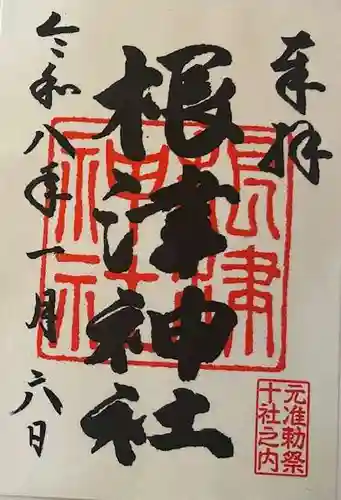 奉拝
根津神社
令和八年一月六日
根津神社
元准勅祭
十社之内